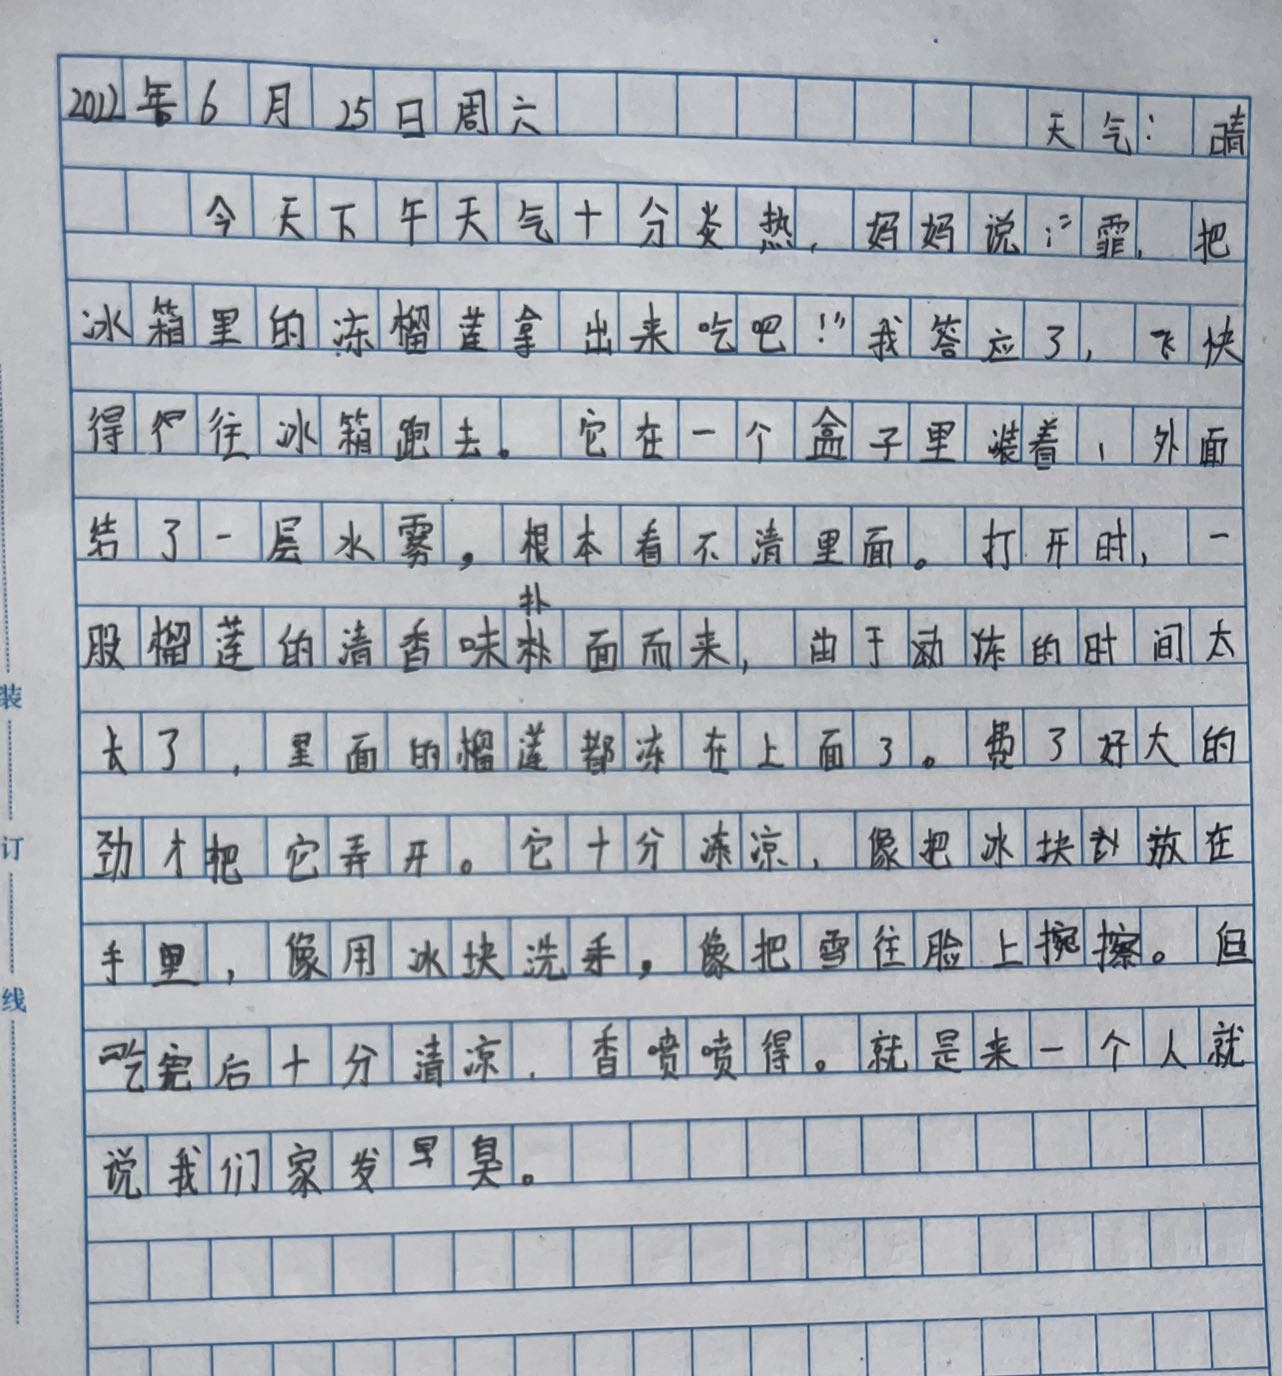 2022年6月25日周六 天气：晴
今天下午天气十分炎热，妈妈说：“霏，把
冰箱里的冻榴莲拿出来吃吧！”我答应了，飞快
得往冰箱跑去。它在一个盒子里装着，外面
结了一层水雾，根本看不清里面。打开时，一
扑
股榴莲的清香味面而来，由于冻的时间太
长了，里面的榴莲都冻在上面了。费了好大的
劲才把它弄开。它十分冻凉，像把冰块放在
手里，像用冰块洗手，像把雪往脸上擦。但
吃完后十分清凉，香喷喷得。就是来一个人就
说我们家发早臭。
装
订
线